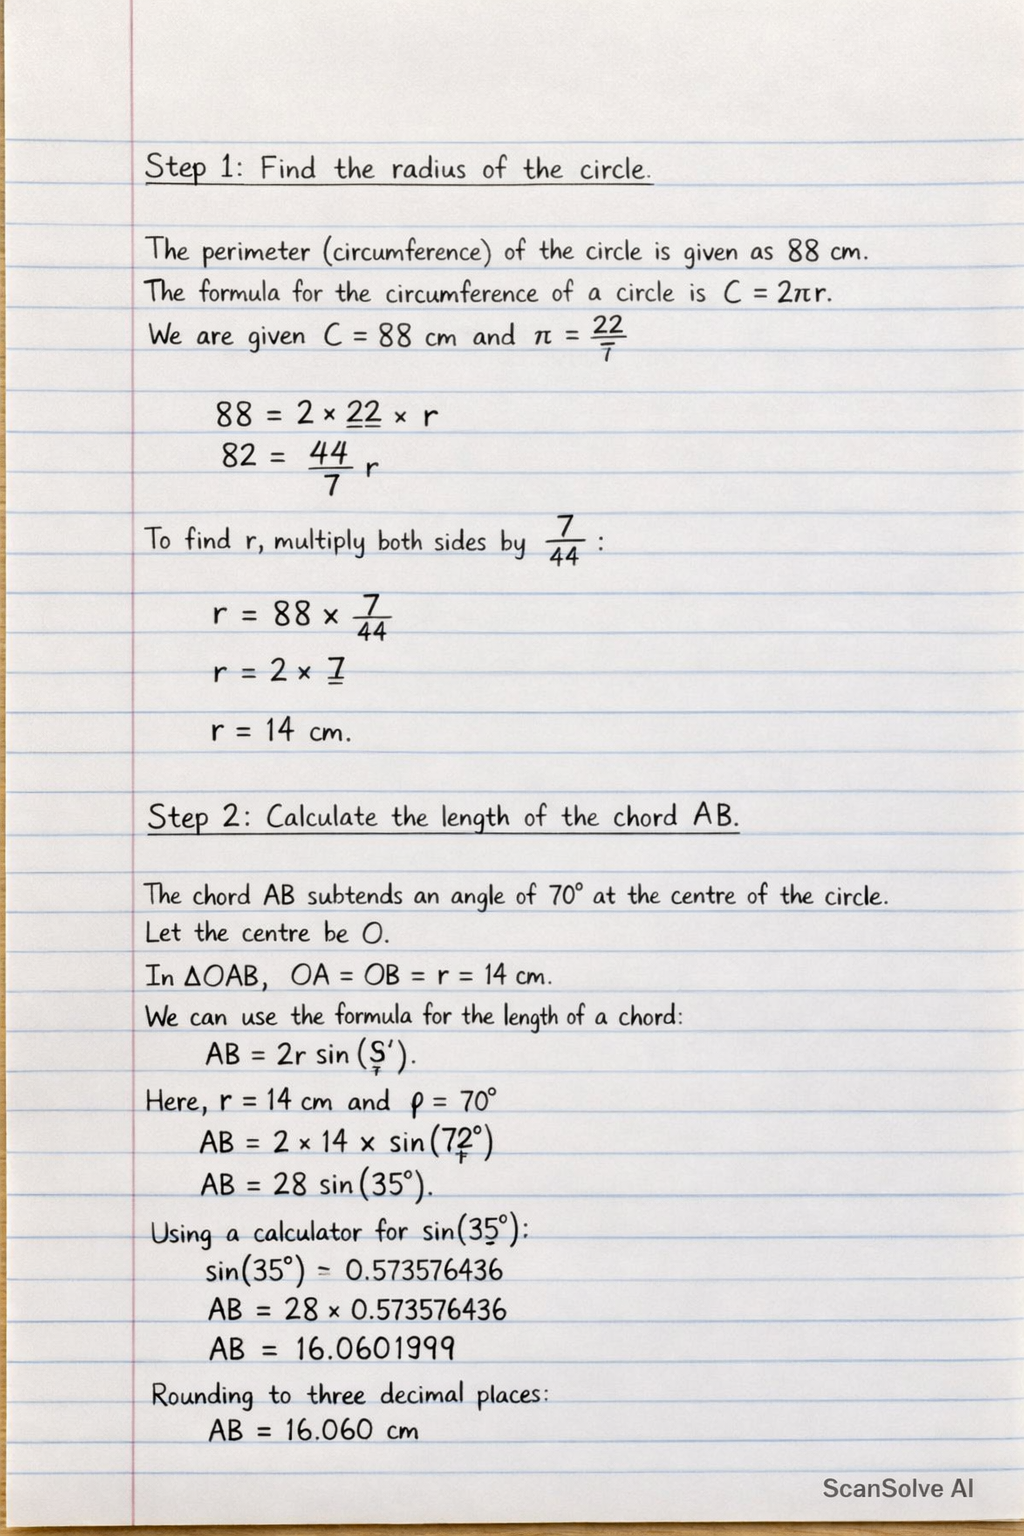 Step 1: Find the radius of the circle.
The perimeter (circumference) of the circle is given as 88 cm.
The formula for the circumference of a circle is C = 2πr.
We are given C = 88 cm and π = 22/7
88 = 2 × 22 × r
82 = 44/7 r
To find r, multiply both sides by 7/44 :
r = 88 × 7/44
r = 2 × 7
r = 14 cm.
Step 2: Calculate the length of the chord AB.
The chord AB subtends an angle of 70° at the centre of the circle.
Let the centre be O.
In ΔOAB, OA = OB = r = 14 cm.
We can use the formula for the length of a chord:
AB = 2r sin
Here, r = 14 cm and ρ = 70°
AB = 2 × 14 × sin(72°)
AB = 28 sin(35°).
Using a calculator for sin(35°):
sin(35°) = 0.573576436
AB = 28 × 0.573576436
AB = 16.0601999
Rounding to three decimal places:
AB = 16.060 cm
ScanSolve AI